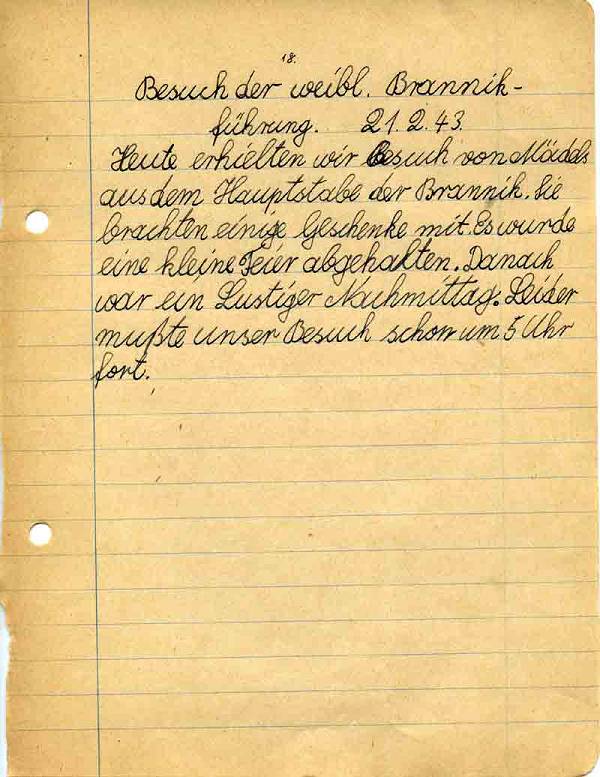 18.
Besuch der weibl. Brannik-
führung. 21.2.43.
Heute erhielten wir Besuch von Mädels
aus dem Hauptstabe der Brannik. Sie
brachten einige Geschenke mit. Es wurde
eine kleine Feier abgehalten. Danach
war ein Lustiger Nachmittag. Leider
mußte unser Besuch schon um 5 Uhr
fort.